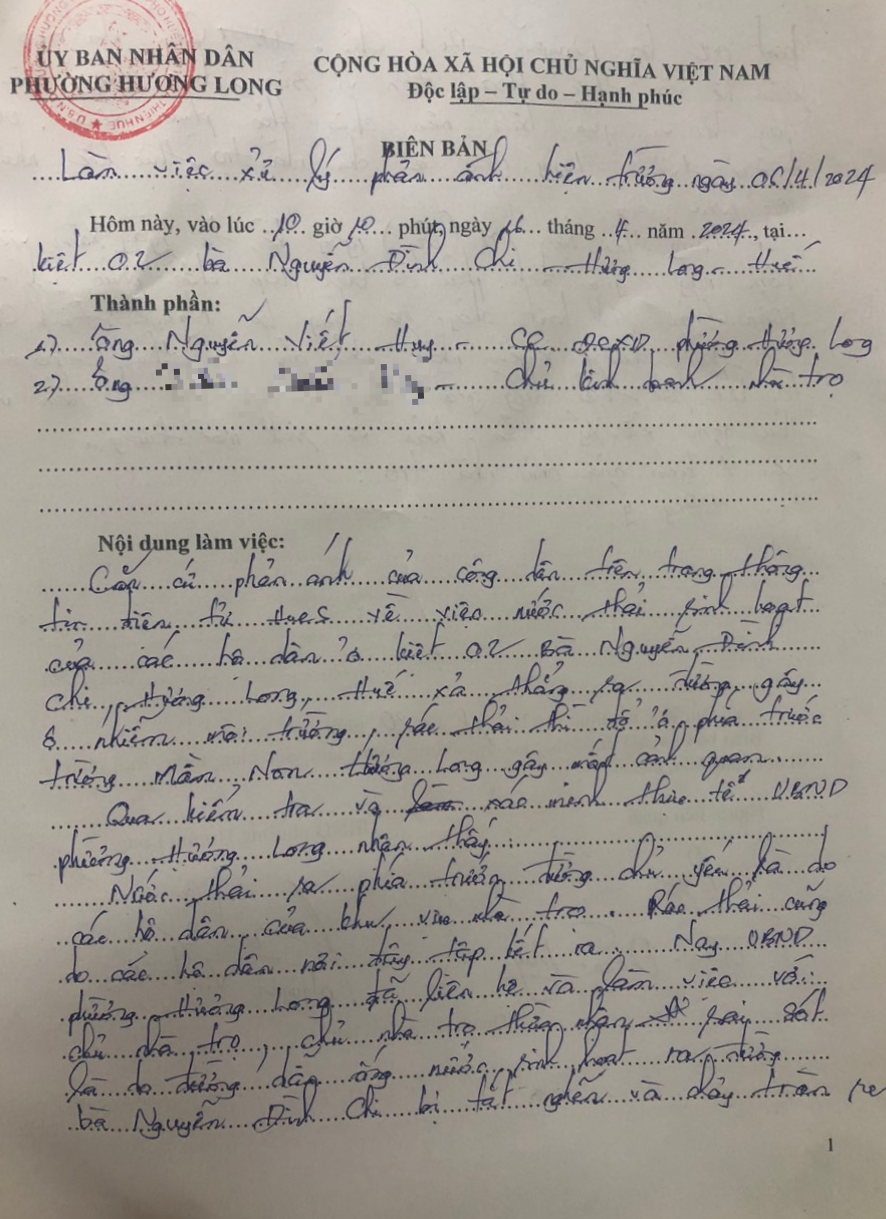 ỦY BAN NHÂN DÂN
PHƯỜNG HƯƠNG LONG
CỘNG HÒA XÃ HỘI CHỦ NGHĨA VIỆT NAM
Độc lập – Tự do – Hạnh phúc
BIÊN BẢN
Làm việc xử lý phản ánh hiện trường ngày 06/4/2024
Hôm này, vào lúc 10 giờ 10 phút, ngày 16 tháng 4 năm 2024, tại
kiệt 02 bà Nguyễn Đình Chi - Hương Long - Huế
Thành phần:
1) Ông Nguyễn Viết Huy - CC ĐCXD phường Hương Long
2) Ông - Chủ kinh doanh nhà trọ
Nội dung làm việc:
Căn cứ phản ánh của công dân trên trang thông
tin điện tử HueS về việc nước thải sinh hoạt
của các hộ dân ở kiệt 02 Bà Nguyễn Đình
Chi, Hương Long, Huế xả thẳng ra đường gây
ô nhiễm môi trường, rác thải thì đổ ở phía trước
trường Mần Non Hương Long gây mất cảnh quan.
Qua kiểm tra và xác minh thực tế UBND
phường Hương Long nhận thấy:
Nước thải ra phía trước đường chủ yếu là do
các hộ dân của khu vực nhà trọ. Rác thải cũng
do các hộ dân nơi đây tập kết ra. Nay UBND
phường Hương Long đã liên hệ và làm việc với
chủ nhà trọ, chủ nhà trọ thừa nhận sai sót
là do đường dẫn ống nước sinh hoạt ra đường
bà Nguyễn Đình Chi bị tắt nghẽn và chảy tràn ra
1